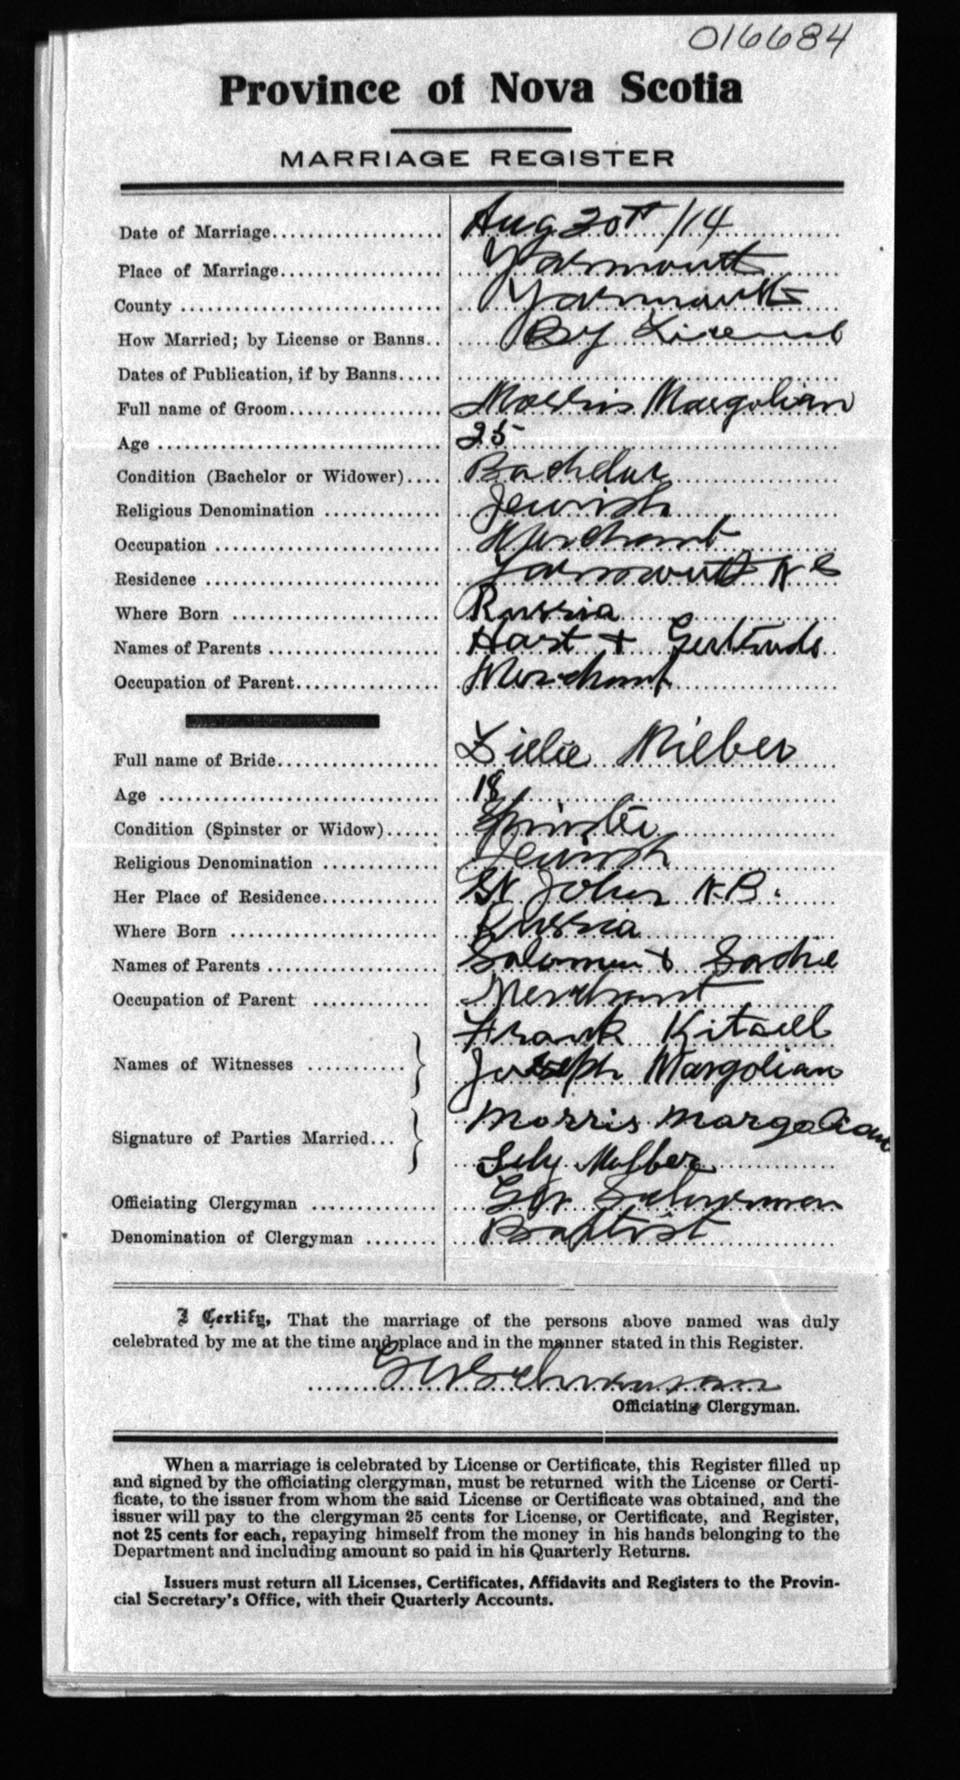 016684
Province of Nova Scotia
MARRIAGE REGISTER
Date of Marriage.................... Aug 20th /14
Place of Marriage.................. Yarmouth
County ............................. Yarmouth
How Married; by License or Banns.. By License
Dates of Publication, if by Banns.....
Full name of Groom................. Morris Margolian
Age ............................... 25
Condition (Bachelor or Widower).... Bachelor
Religious Denomination ............. Jewish
Occupation ......................... Merchant
Residence .......................... Yarmouth N S
Where Born ....................... Russia
Names of Parents ................... Hart + Gertrude
Occupation of Parent................ Merchant
Full name of Bride.................. Lillie Milber
Age ............................... 18
Condition (Spinster or Widow)...... Spinster
Religious Denomination ............. Jewish
Her Place of Residence.............. St John N.B.
Where Born ....................... Russia
Names of Parents ................... Solomon & Sadie
Occupation of Parent ............. Merchant
Frank Kitzell
Names of Witnesses ...........
Joseph Margolian
Morris Margolian
Signature of Parties Married...
Lily
Officiating Clergyman .............. G W Schurman
Denomination of Clergyman ........ Baptist
I Certify, That the marriage of the persons above named was duly
celebrated by me at the time and place and in the manner stated in this Register.
G W Schurman
Officiating Clergyman.
When a marriage is celebrated by License or Certificate, this Register filled up
and signed by the officiating clergyman, must be returned with the License or Certi-
ficate, to the issuer from whom the said License or Certificate was obtained, and the
issuer will pay to the clergyman 25 cents for License, or Certificate, and Register,
not 25 cents for each, repaying himself from the money in his hands belonging to the
Department and including amount so paid in his Quarterly Returns.
Issuers must return all Licenses, Certificates, Affidavits and Registers to the Provin-
cial Secretary's Office, with their Quarterly Accounts.